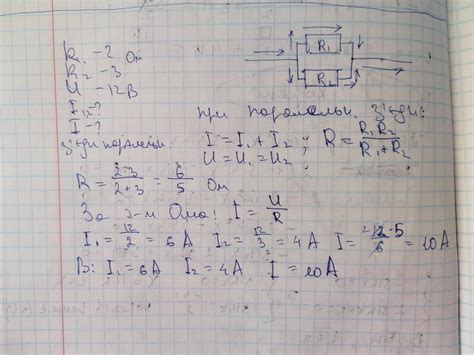 R₁ - 2 Ом
R₂ - 3
U - 12 В
I₁,₂ - ?
I - ?
R₁
R₂
при паралельн. з'єдн:
I = I₁ + I₂; R = R₁R₂ / R₁+R₂
U = U₁ = U₂
R = 2·3 / 2+3 = 6 / 5 Ом
За з-м Ома: I = U / R
I₁ = 12 / 2 = 6 A I₂ = 12 / 3 = 4 A I = 12·5 / 6 = 10 A
В: I₁ = 6 A I₂ = 4 A I = 10 A